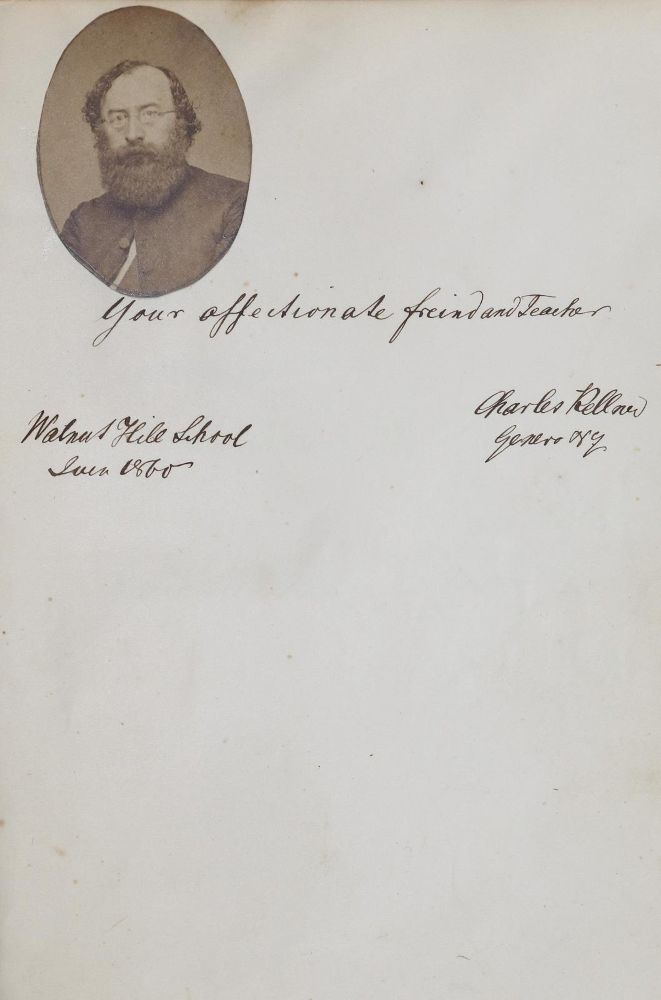 Your affectionate freind and Teacher
Charles Kellner
Walnut Hill School
Geneva NY
Juin 1860